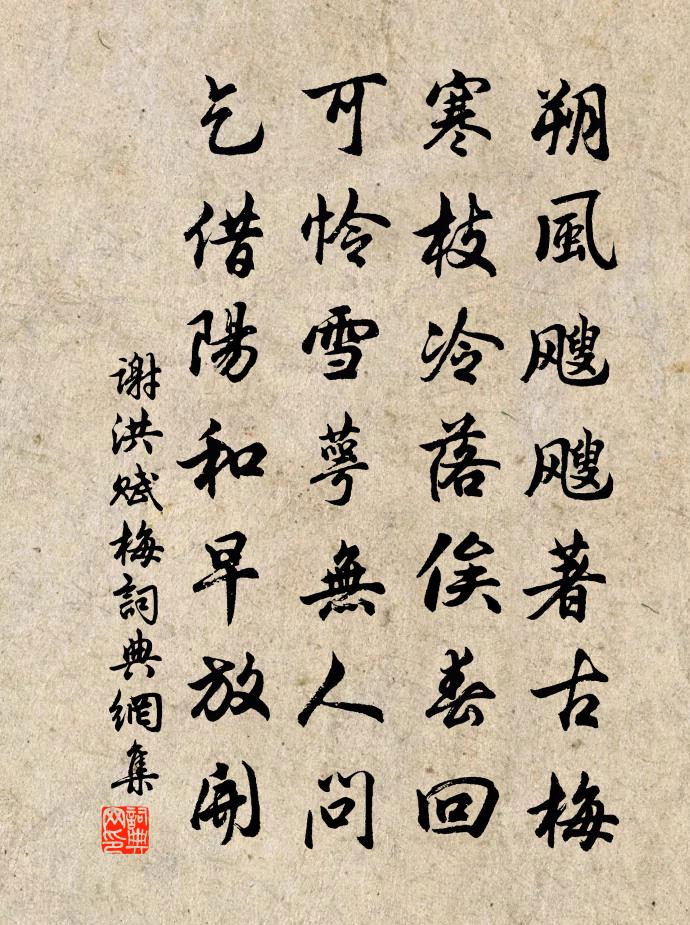 朔風颼颼著古梅
寒枝冷落俟春回
可憐雪萼無人問
乞借陽和早放開
謝洪賦梅詞典網集
詞典网印